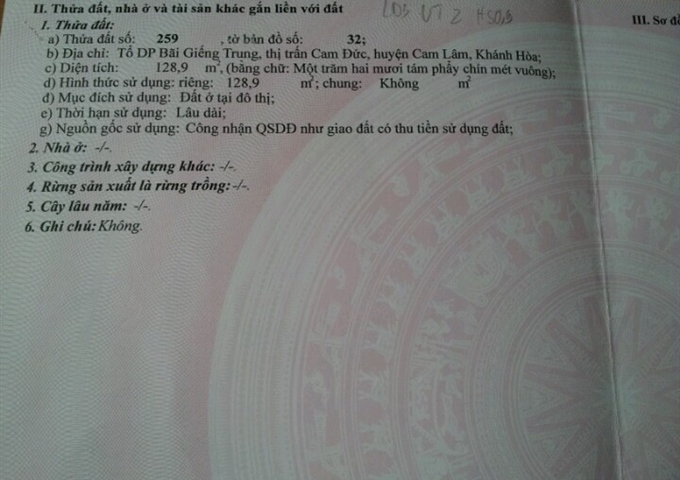 II. Thửa đất, nhà ở và tài sản khác gắn liền với đất
1. Thửa đất:
a) Thửa đất số: 259 , tờ bản đồ số: 32;
b) Địa chỉ: Tổ DP Bãi Giếng Trung, thị trấn Cam Đức, huyện Cam Lâm, Khánh Hòa;
c) Diện tích: 128,9 m², (bằng chữ: Một trăm hai mươi tám phẩy chín mét vuông);
d) Hình thức sử dụng: riêng: 128,9 m²; chung: Không m²
đ) Mục đích sử dụng: Đất ở tại đô thị;
e) Thời hạn sử dụng: Lâu dài;
g) Nguồn gốc sử dụng: Công nhận QSDĐ như giao đất có thu tiền sử dụng đất;
2. Nhà ở: -/-.
3. Công trình xây dựng khác: -/-.
4. Rừng sản xuất là rừng trồng: -/-.
5. Cây lâu năm: -/-.
6. Ghi chú: Không.
III. Sơ đồ